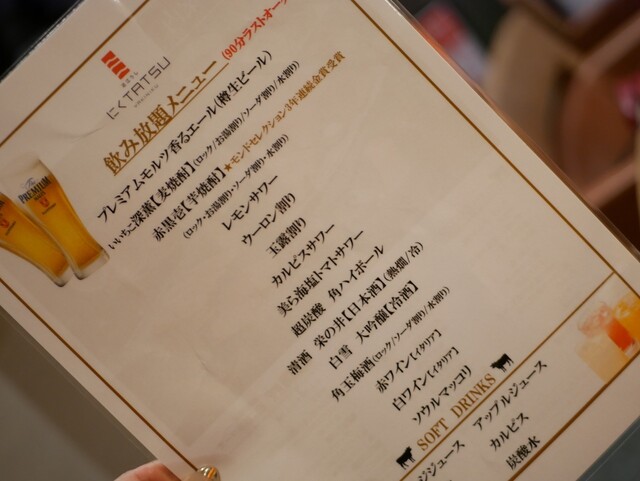 にくTATSU
飲み放題メニュー
(90分ラストオーダ
プレミアムモルツ香るエール(樽生ビール)
いいちこ深薫【麦焼酎】(ロック/お湯割り/ソーダ割り/水割り)
赤黒壱【芋焼酎】★モンドセレクション3年連続金賞受賞
(ロック・お湯割り・ソーダ割り・水割り)
レモンサワー
ウーロン割り
玉露割り
カルピスサワー
美ら海塩トマトサワー
超炭酸 角ハイボール
清酒 栄の井【日本酒】(熱燗/冷)
白雪 大吟醸【冷酒】
角玉梅酒(ロック/ソーダ割り/水割り)
赤ワイン【イタリア】
白ワイン【イタリア】
ソウルマッコリ
SOFT DRINKS
ジジュース
アップルジュース
カルピス
炭酸水